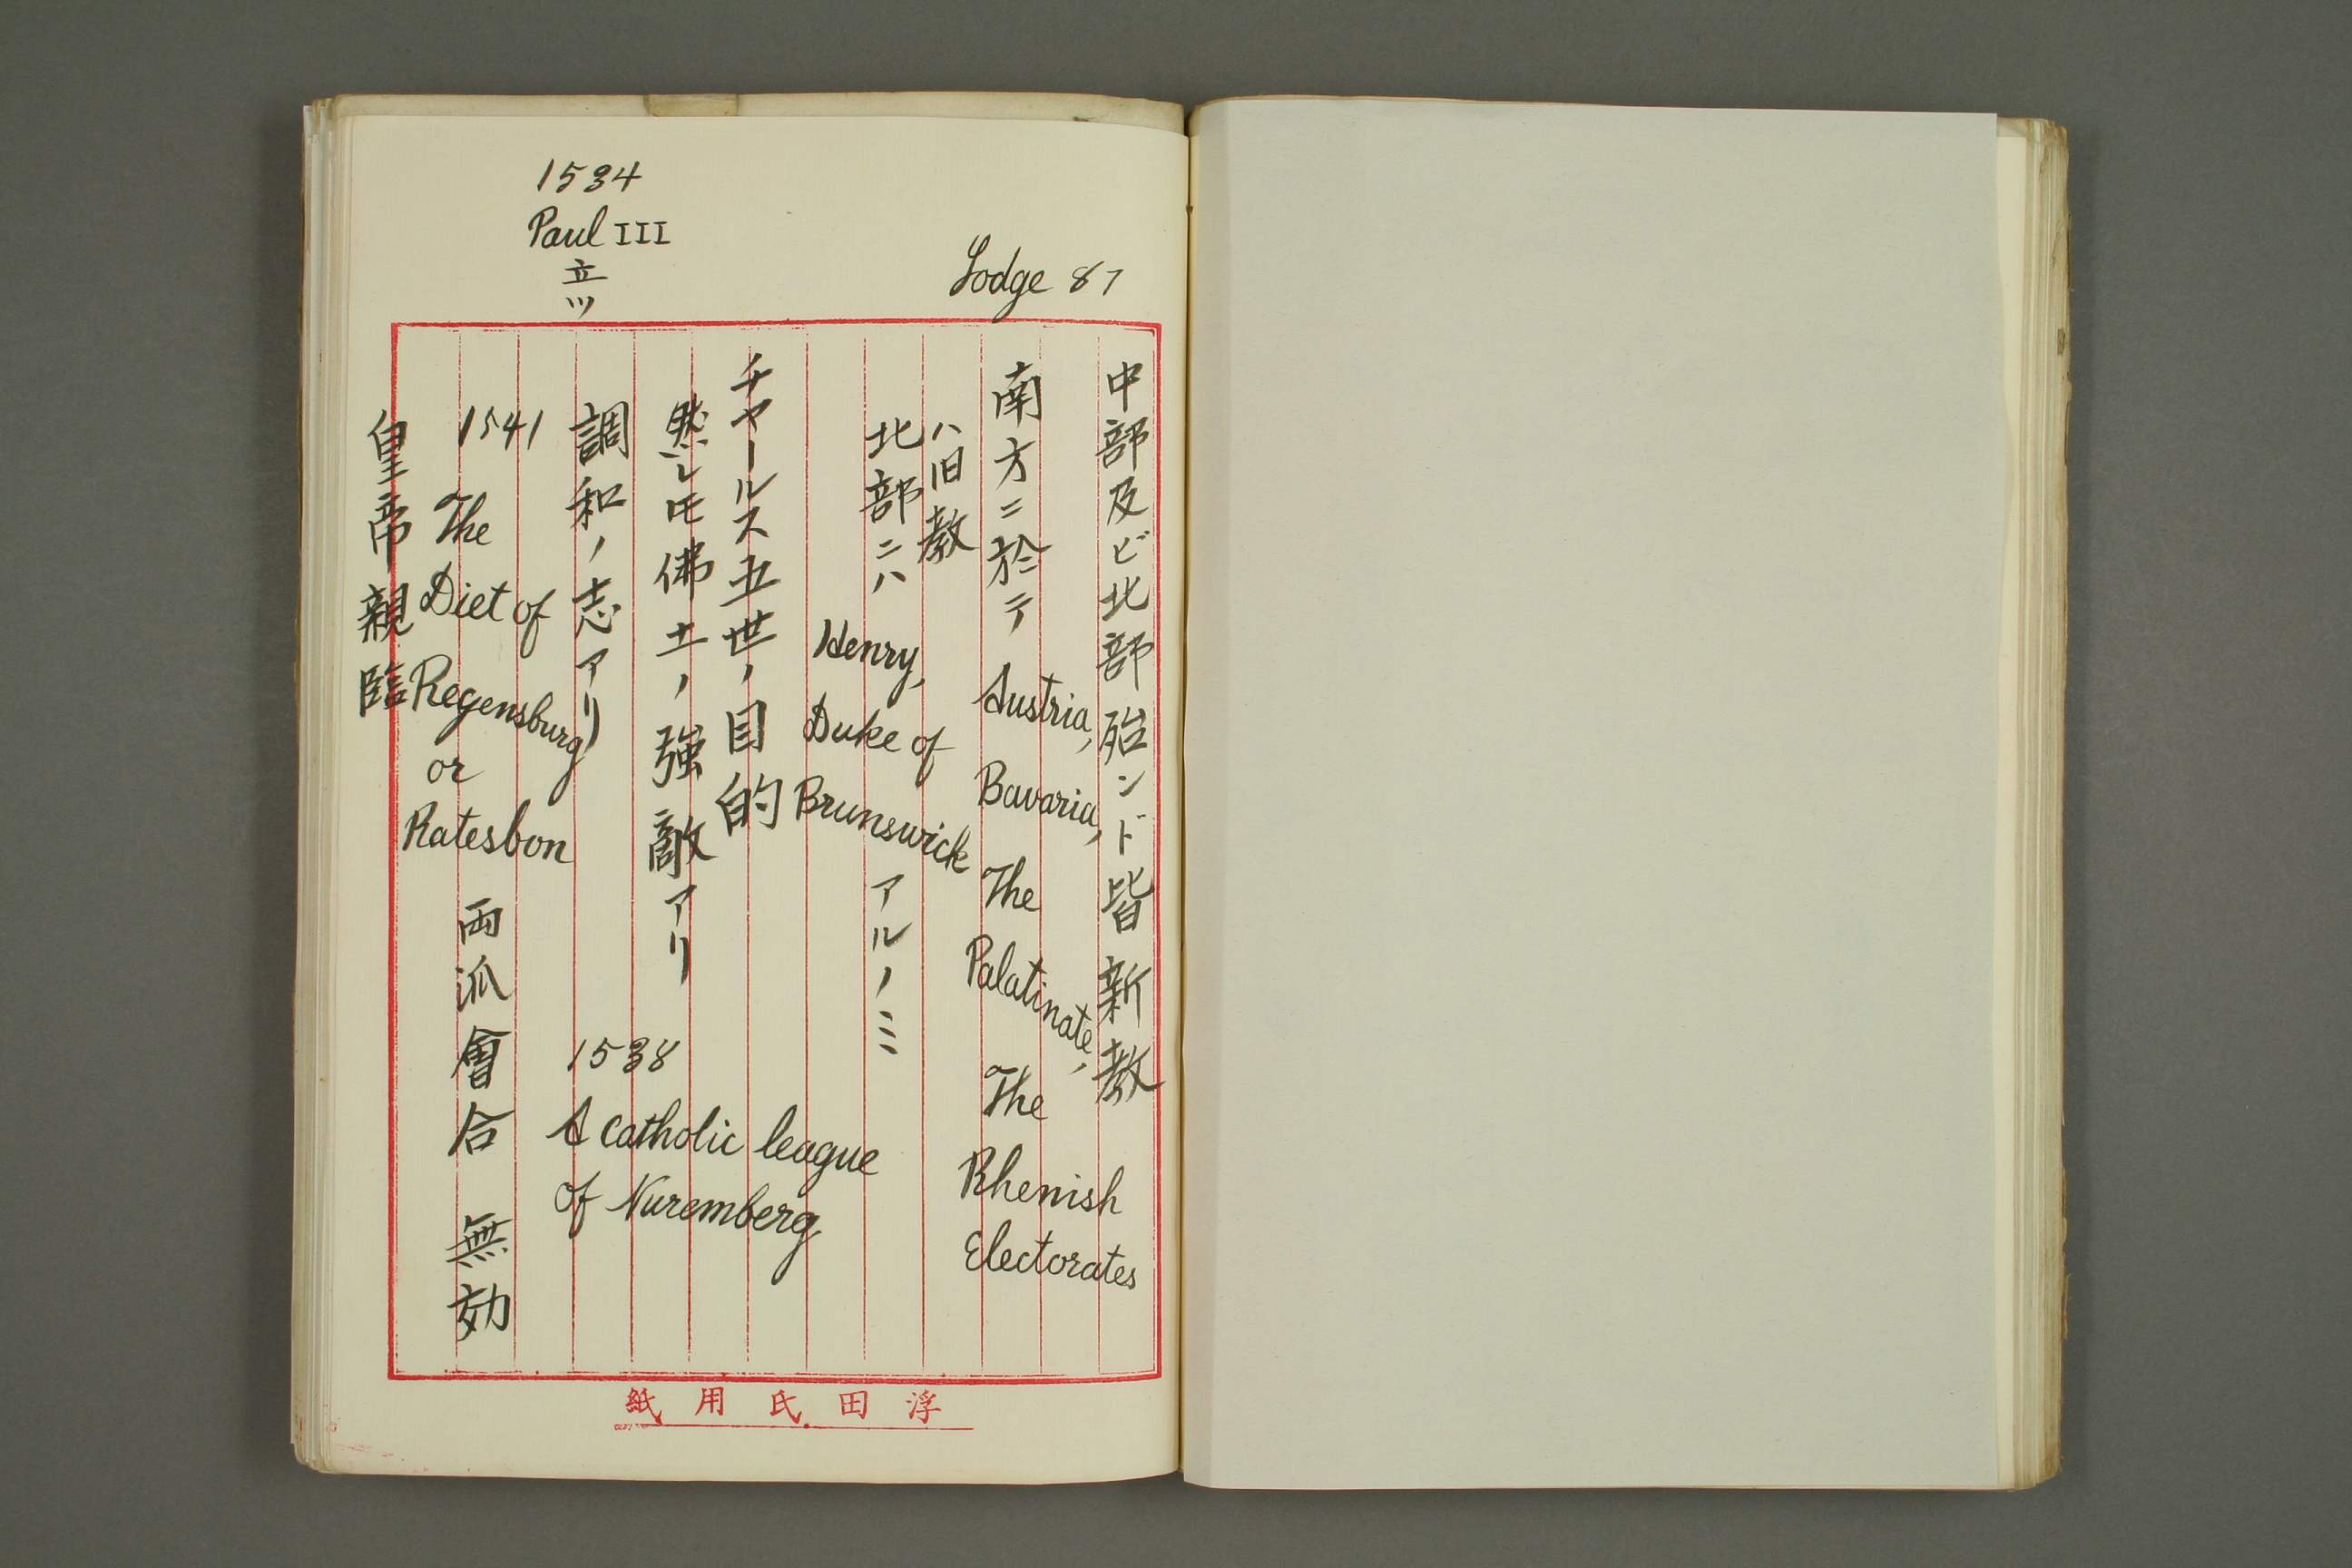 Lodge 87
1534
Paul III
立ツ
中部及ビ北部殆ンド皆新教
南方ニ於テ Austria, Bavaria, The Palatinate, The Rhenish Electorates
ハ旧教
北部ニハ Henry, Duke of Brunswick アルノミ
チヤールス五世ノ目的
然レ𪜈佛土ノ強敵アリ
調和ノ志アリ
1538
A catholic league
of Nuremberg
1541 The Diet of Regensburg or Ratesbon 両派會合 無効
皇帝親臨
浮田氏用紙